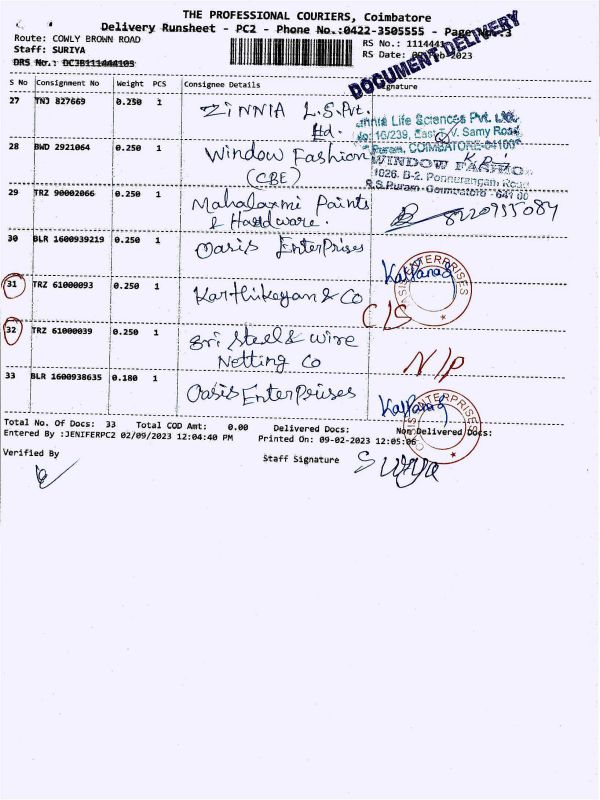 THE PROFESSIONAL COURIERS, Coimbatore
Delivery Runsheet - PC2 - Phone No.:0422-3505555 - Page No.:3
Route: COWLY BROWN ROAD
RS No.: 1114441
Staff: SURIYA
RS Date: 09-Feb-2023
DRS No.: DC3B111444103
DOCUMENT DELIVERY
S No Consignment No Weight PCS Consignee Details Signature
27 TNJ 827669 0.250 1 ZINNIA L.S.Pvt. Ltd.
Zinnia Life Sciences Pvt. Ltd.
No: 16/239, East T.V. Samy Road,
Puram, COIMBATORE-641002
28 BWD 2921064 0.250 1 Window Fashion (CBE)
WINDOW FASHION
1026. B-2. Ponnurangam Road
R.S.Puram-Coimbatore - 641 00
29 TRZ 90002066 0.250 1 Mahalaxmi Paints & Hardware. 8220955084
30 BLR 1600939219 0.250 1 Oasis EnterPrises Kalpana
OASIS ENTERPRISES
31 TRZ 61000093 0.250 1 Karthikeyan & Co C/S
32 TRZ 61000039 0.250 1 Sri Steel & Wire Netting Co N/P
33 BLR 1600938635 0.180 1 Oasis EnterPrises Kalpana
OASIS ENTERPRISES
Total No. Of Docs: 33 Total COD Amt: 0.00 Delivered Docs: Non Delivered Docs:
Entered By :JENIFERPC2 02/09/2023 12:04:40 PM Printed On: 09-02-2023 12:05:06
Verified By
Staff Signature Suriya